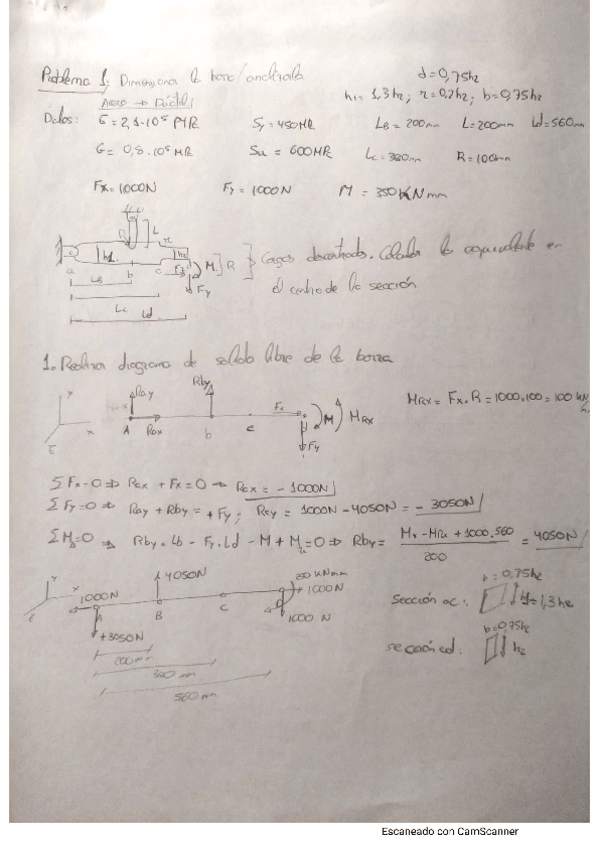 Problema 1: Dimensiona la barra/ anclada
d=0,75h2
h1=1,3h2; r=0,2h2; b=0,75h2
Acero → Dúctil
Datos: G=2,1·10⁵ MPR Sy=450MPR LB=200mm L=200mm Ld=560mm
G=0,8·10⁵ MPR Su=600MPR Lc=320mm R=100mm
Fx=1000N Fy=1000N M=350KNmm
R L r
h1 h2 Fx M R Cargas descentradas. Calcular la equivalente en
a b c d Fy el centro de la sección
LB
Lc
Ld
1. Realizar diagrama de solido libre de la barra
y Ray Rby Fx M MRX MRX = Fx·R = 1000·100 = 100 kN
x A Rax b c Fy
z
ΣFx=0 ⇒ Rax + Fx=0 → Rax = -1000N
ΣFy=0 ⇒ Ray + Rby = +Fy; Ray = 1000N-4050N = -3050N
ΣMa=0 ⇒ Rby·Lb - Fy·Ld - M + M=0 ⇒ Rby= 1000·560 / 200 = 4050N
y 4050N 1000N
x 1000N A B C 1000 N
z +3050N
200mm
320mm
560mm
b=0,75h2
Sección ac: 1,3h2
b=0,75h2
sección cd: h2
Escaneado con CamScanner